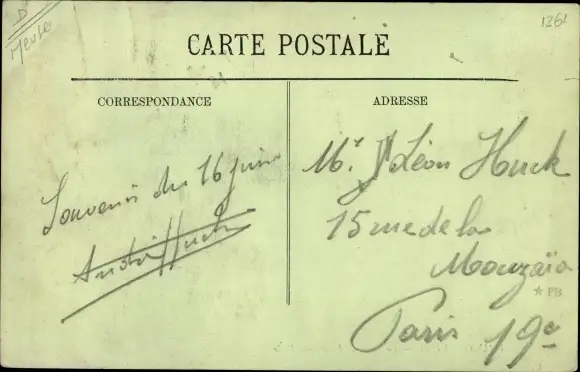 D
Meuse
1261
CARTE POSTALE
CORRESPONDANCE
ADRESSE
Souvenir du 16 juin
André Huck
Mr. Léon Huck
15 rue de la
Mouzaïa
*PB
Paris 19e